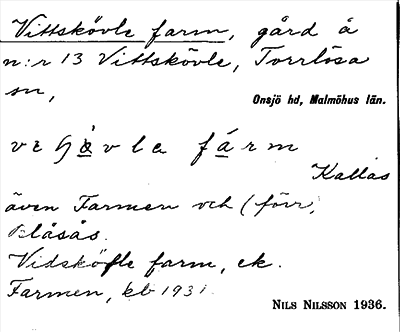 Vittskövle farm, gård å
n:r 13 Vittskövle, Torrlösa
sn,
Onsjö hd, Malmöhus län.
fárm
Kallas
även Farmen och (förr)
Blåsås.
Vidsköfle farm, ek.
Farmen, kb 1931
NILS NILSSON 1936.